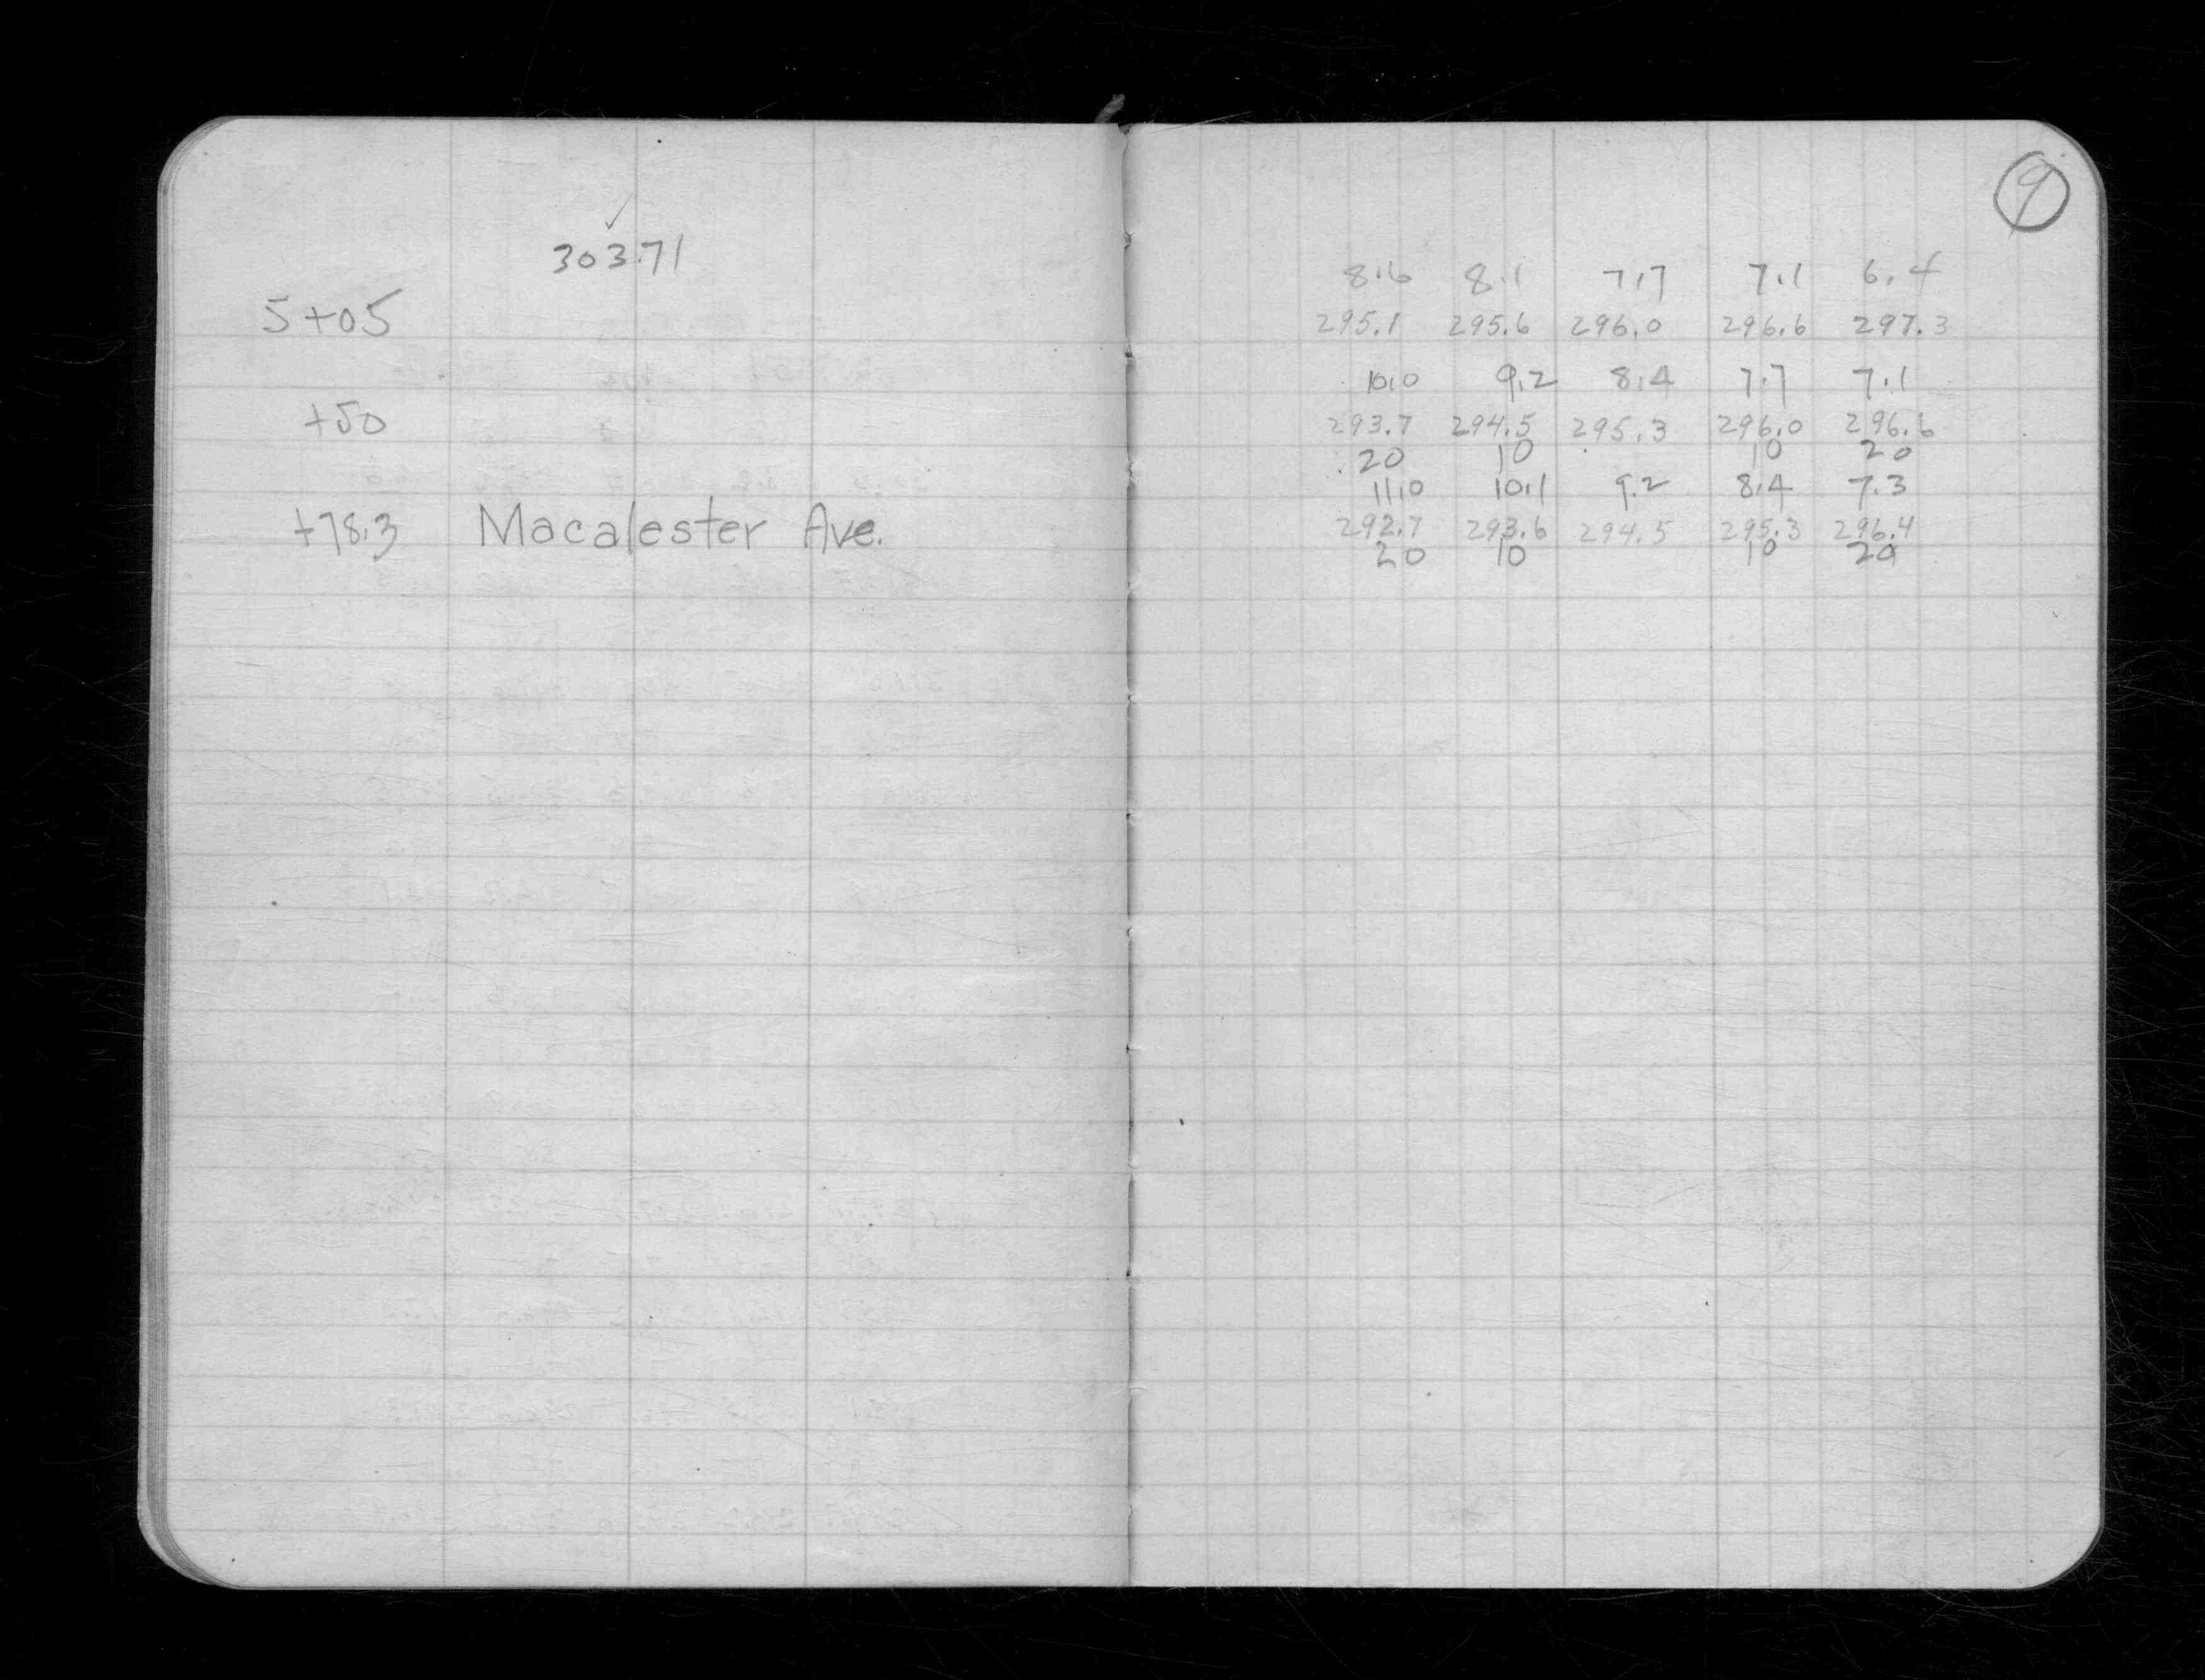 9
✓
303.71
8.6 8.1 7.7 7.1 6.4
5+05 295.1 295.6 296.0 296.6 297.3
10.0 9.2 8.4 7.7 7.1
+50 293.7 294.5 295.3 296.0 296.6
20 10 10 20
11.0 10.1 9.2 8.4 7.3
+78.3 Macalester Ave. 292.7 293.6 294.5 295.3 296.4
20 10 10 20